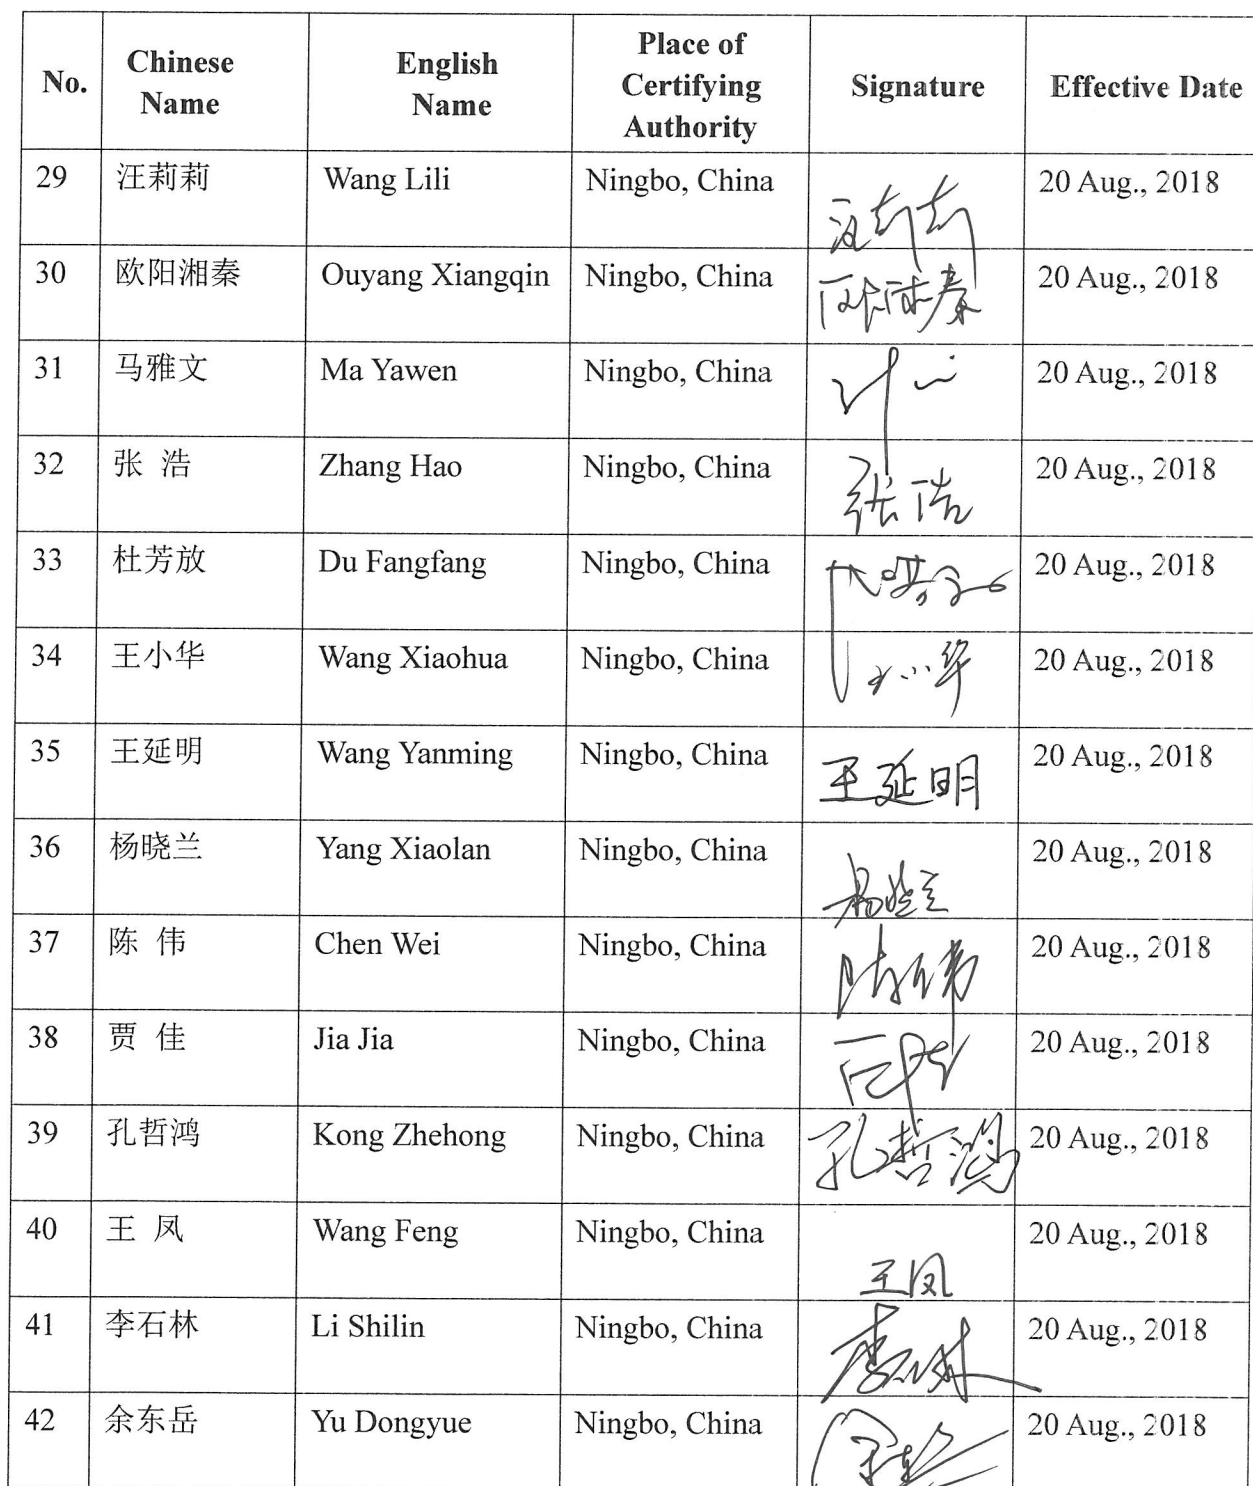 No. Chinese Name English Name Place of Certifying Authority Signature Effective Date
29 汪莉莉 Wang Lili Ningbo, China 汪莉莉 20 Aug., 2018
30 欧阳湘秦 Ouyang Xiangqin Ningbo, China 20 Aug., 2018
31 马雅文 Ma Yawen Ningbo, China 20 Aug., 2018
32 张 浩 Zhang Hao Ningbo, China 张浩 20 Aug., 2018
33 杜芳放 Du Fangfang Ningbo, China 20 Aug., 2018
34 王小华 Wang Xiaohua Ningbo, China 王小华 20 Aug., 2018
35 王延明 Wang Yanming Ningbo, China 王延明 20 Aug., 2018
36 杨晓兰 Yang Xiaolan Ningbo, China 杨晓兰 20 Aug., 2018
37 陈 伟 Chen Wei Ningbo, China 陈伟 20 Aug., 2018
38 贾 佳 Jia Jia Ningbo, China 20 Aug., 2018
39 孔哲鸿 Kong Zhehong Ningbo, China 孔哲鸿 20 Aug., 2018
40 王 凤 Wang Feng Ningbo, China 王凤 20 Aug., 2018
41 李石林 Li Shilin Ningbo, China 李石林 20 Aug., 2018
42 余东岳 Yu Dongyue Ningbo, China 20 Aug., 2018